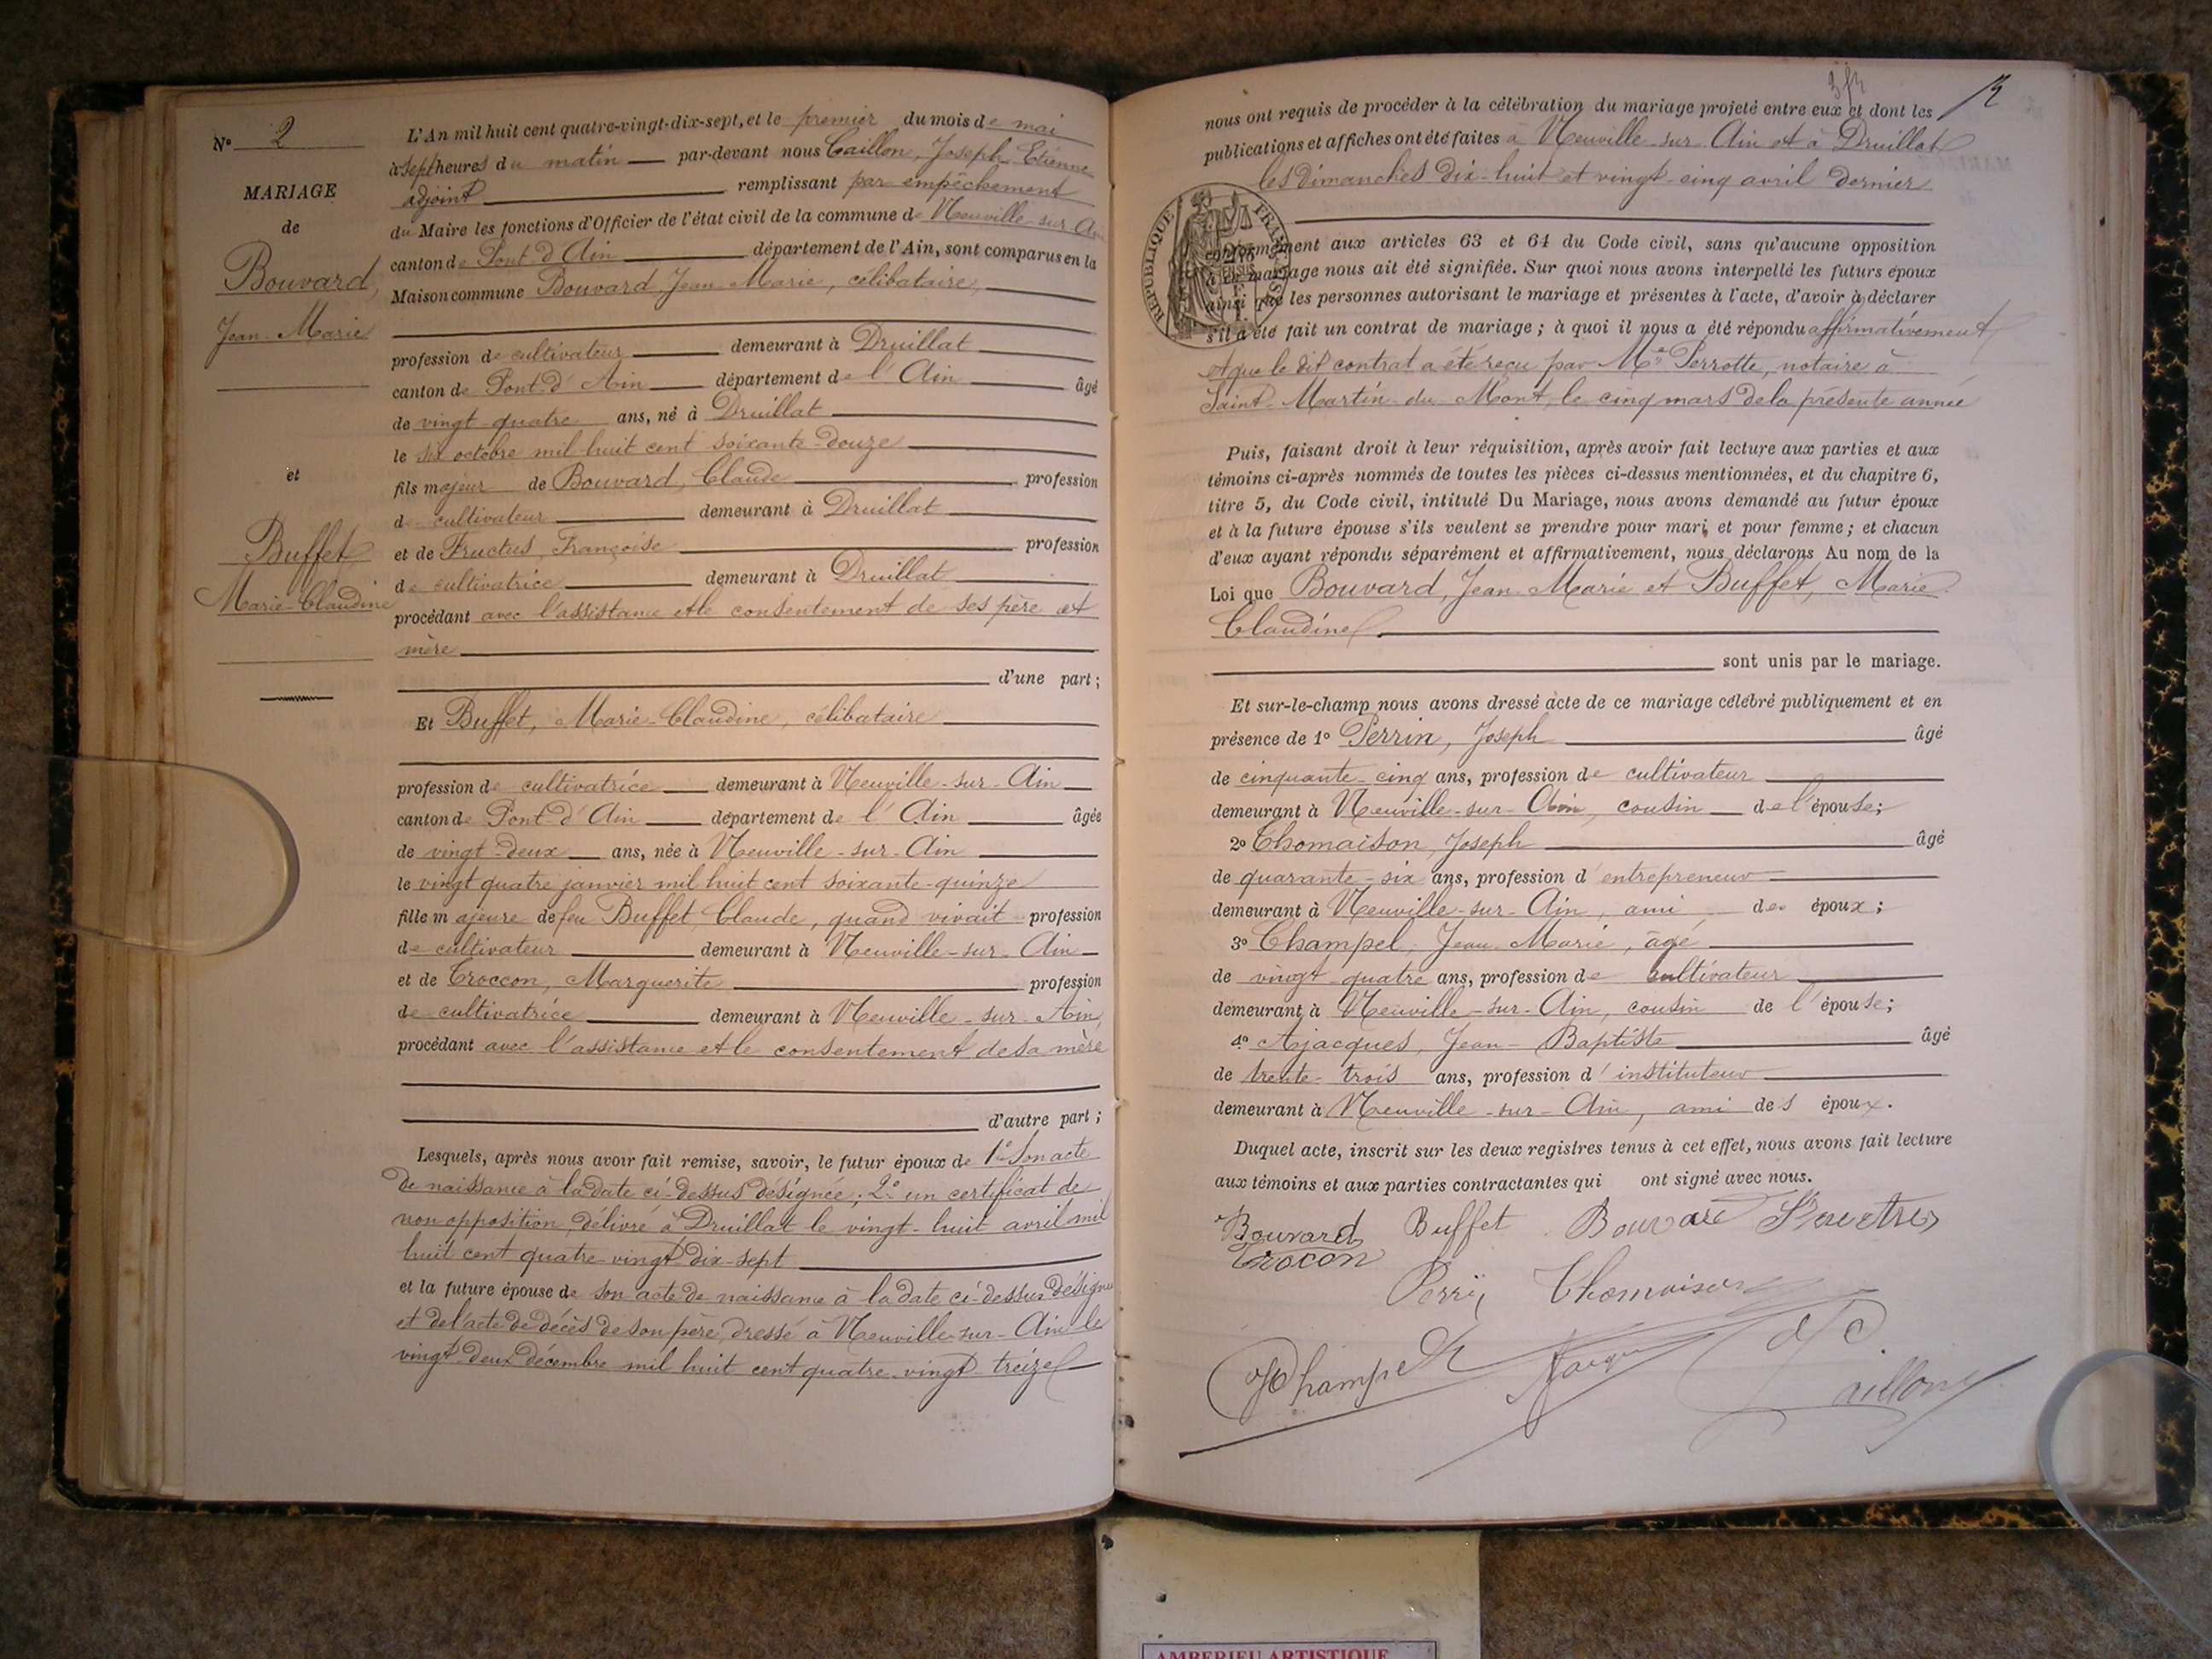 N° 2
MARIAGE
de
Bouvard,
Jean-Marie
et
Buffet
Marie-Claudine
L'An mil huit cent quatre-vingt-dix-sept, et le premier du mois de mai
à sept heures du matin par-devant nous Caillon, Joseph Etienne
adjoint remplissant par empêchement
du Maire les fonctions d'Officier de l'état civil de la commune de Neuville-sur-Ain
canton de Pont-d'Ain département de l'Ain, sont comparus en la
Maison commune Bouvard, Jean-Marie, célibataire,
profession de cultivateur demeurant à Druillat
canton de Pont-d'Ain département de l'Ain âgé
de vingt-quatre ans, né à Druillat
le six octobre mil huit cent soixante-douze
fils majeur de Bouvard, Claude profession
de cultivateur demeurant à Druillat
et de Fructus, Françoise profession
de cultivatrice demeurant à Druillat
procédant avec l'assistance et le consentement de ses père et
mère
d'une part ;
Et Buffet, Marie-Claudine, célibataire
profession de cultivatrice demeurant à Neuville-sur-Ain
canton de Pont-d'Ain département de l'Ain âgée
de vingt-deux ans, née à Neuville-sur-Ain
le vingt quatre janvier mil huit cent soixante-quinze
fille majeure de feu Buffet, Claude, quand vivait profession
de cultivateur demeurant à Neuville-sur-Ain
et de Troccon, Marguerite profession
de cultivatrice demeurant à Neuville-sur-Ain
procédant avec l'assistance et le consentement de sa mère
d'autre part ;
Lesquels, après nous avoir fait remise, savoir, le futur époux de 1° Son acte
de naissance à la date ci-dessus désignée ; 2° un certificat de
non opposition, délivré à Druillat le vingt-huit avril mil
huit cent quatre-vingt dix-sept
et la future épouse de son acte de naissance à la date ci-dessus désignée
et de l'acte de décès de son père, dressé à Neuville-sur-Ain le
vingt-deux décembre mil huit cent quatre-vingt-treize
12
nous ont requis de procéder à la célébration du mariage projeté entre eux et dont les
publications et affiches ont été faites à Neuville-sur-Ain et à Druillat
les dimanches dix-huit et vingt-cinq avril dernier
RÉPUBLIQUE FRANÇAISE
conformément aux articles 63 et 64 du Code civil, sans qu'aucune opposition
à ce mariage nous ait été signifiée. Sur quoi nous avons interpellé les futurs époux
ainsi que les personnes autorisant le mariage et présentes à l'acte, d'avoir à déclarer
s'il a été fait un contrat de mariage ; à quoi il nous a été répondu affirmativement
et que le dit contrat a été reçu par Me Perrotte, notaire à
Saint-Martin-du-Mont, le cinq mars de la présente année
Puis, faisant droit à leur réquisition, après avoir fait lecture aux parties et aux
témoins ci-après nommés de toutes les pièces ci-dessus mentionnées, et du chapitre 6,
titre 5, du Code civil, intitulé Du Mariage, nous avons demandé au futur époux
et à la future épouse s'ils veulent se prendre pour mari et pour femme ; et chacun
d'eux ayant répondu séparément et affirmativement, nous déclarons Au nom de la
Loi que Bouvard, Jean-Marie et Buffet, Marie
Claudine
sont unis par le mariage.
Et sur-le-champ nous avons dressé acte de ce mariage célébré publiquement et en
présence de 1° Perrin, Joseph âgé
de cinquante-cinq ans, profession de cultivateur
demeurant à Neuville-sur-Ain, cousin de l'épouse ;
2° Thomaison, Joseph âgé
de quarante-six ans, profession d'entrepreneur
demeurant à Neuville-sur-Ain, ami des époux ;
3° Champel, Jean-Marie, âgé
de vingt-quatre ans, profession de cultivateur
demeurant à Neuville-sur-Ain, cousin de l'épouse ;
4° Ajacques, Jean-Baptiste âgé
de trente-trois ans, profession d'instituteur
demeurant à Neuville-sur-Ain, ami des époux.
Duquel acte, inscrit sur les deux registres tenus à cet effet, nous avons fait lecture
aux témoins et aux parties contractantes qui ont signé avec nous.
Bouvard Buffet Bouvard
Trocon
Thomaison
Champel
Caillon
AMBERIEU ARTISTIQUE